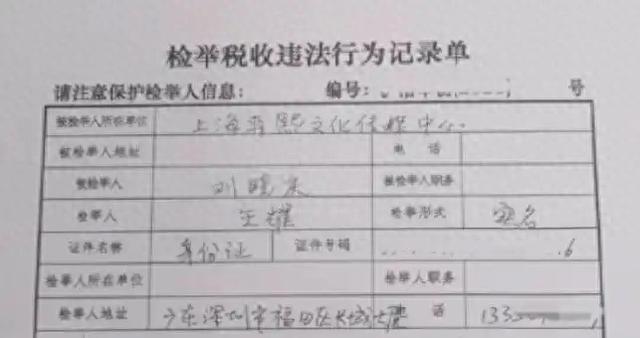 检举税收违法行为记录单
请注意保护检举人信息： 编号： 号
被检举人所在单位 上海 文化传媒中心
被检举人地址 电 话
被检举人 刘晓庆 被检举人职务
检举人 王耀 检举形式 实名
证件名称 身份证 证件号码 6
检举人所在单位 检举人职务
检举人地址 广东深圳市福田区长城大厦 话 133